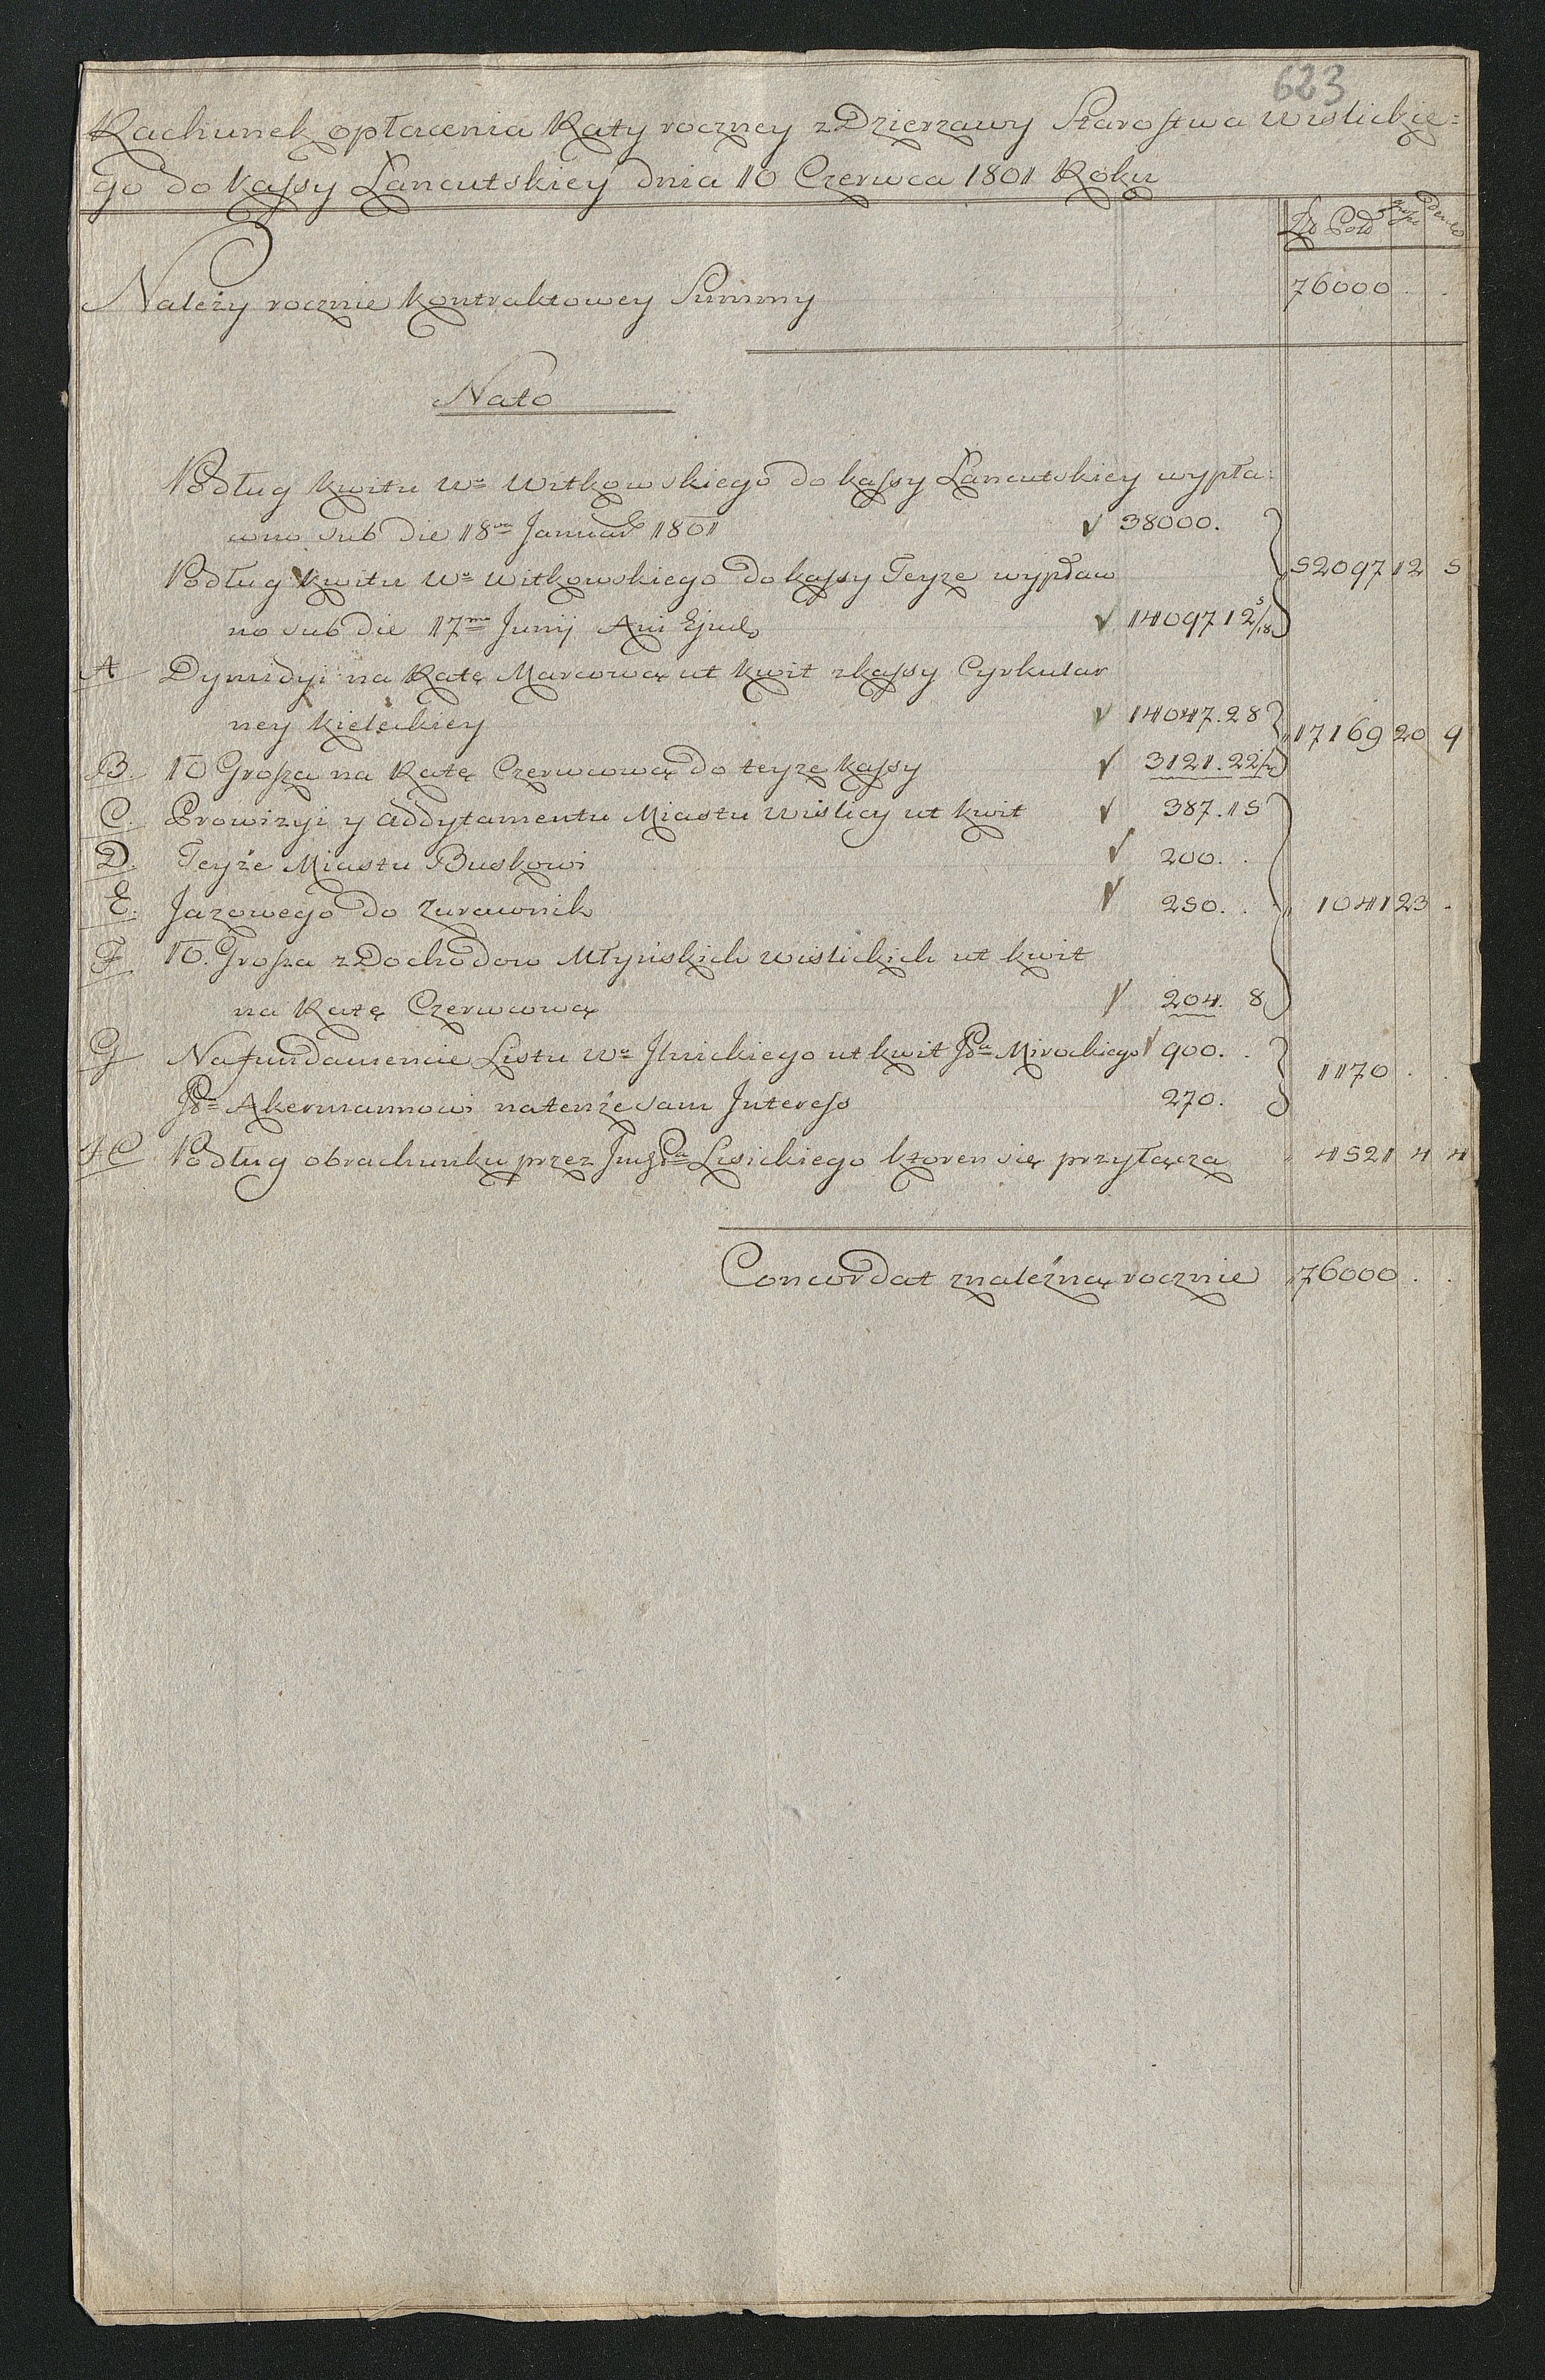 623
Rachunek opłacenia Raty roczney z Dzierzawy Starostwa Wislickie=
go do kassy Lancutskiey dnia 10 Czerwca 1801 Roku
Zł Pol
Należy rocznie kontraktowey Summy 76000 . .
Nato
Podług kwitu Wo Witkowskiego do kassy Lancutskiey wypła:
cono sub die 18va Januar 1801 38000.
Podług kwitu Wo Witkowskiego do kassy Teyze wypłaco 52097 12 5
no sub die 17ma Junij Ani Ejusd 14097 12 5/18
A Dymidyi na Ratę Marcową ut kwit z kassy Cyrkular
ney kieleckiey 14047.28 17169 20 9
B. 10 Grosza na Ratę Czerwcową do teyze kassy 3121.22/
C. Prowizyi y addytamentu Miastu Wislicy ut kwit 387.15
D. Teyże Miastu Buskowi 200. .
E. Jazowego do Zurawnik 250. . 1041 23 .
F 10. Grosza z Dochodow Młyńskich Wislickich ut kwit
na Ratę Czerwcową 204. 8
G Na fundamencie Listu Wo Ilnickiego ut kwit JPa Mirockiego 900. . 1170 . .
JPu Akermannowi na tenże sam Interess 270.
H Podług obrachunku przez Lisickiego ktoren się przyłącza 4521 4 4
Concordat z należną rocznie 76000 . .